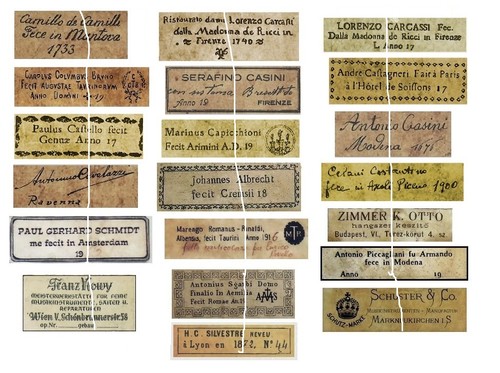 Camillo de Camilli
fece in Mantova
1733
CAROLUS COLUMBUS BRUNO
FECIT AUGUSTAE TAURINORUM
ANNO DOMINI 19
Paulus Castello fecit
Genuæ Anno 17
Antonio
Ravenna
PAUL GERHARD SCHMIDT
me fecit in Amsterdam
19
Franz Nowy
MEISTERWERKSTÄTTE FÜR FEINE
MUSIKINSTRUMENTE, SAITEN U.
REPARATUREN
Wien V. Schönbrunnerstr. 38
op. Nr. gebaut
Ristaurato da me Lorenzo Carcassi
dalla Madonna de Ricci in
Firenze 1740
SERAFINO CASINI
con vernice
Anno 19 FIRENZE
Marinus Capicchioni
Fecit Arimini A.D. 19
Johannes Albrecht
fecit Cremsii 18
Marengo Romanus - Rinaldi,
Albensis, fecit Taurini Anno 1916
Antonius Sgarbi Domo
Finalio In Aemilia
Fecit Romae An.D.
H. C. SILVESTRE NEVEU
à Lyon en 1872, Nº 44
LORENZO CARCASSI Fec.
Dalla Madonna de Ricci in Firenze
L Anno 17
Andre Castagneri Fait à Paris
à l'Hôtel de Soissons 17
Antonio Casini
Modena 167
Celani Costantino
fece in Ascoli Piceno 1900
ZIMMER K. OTTO
hangszer készítő
Budapest, VI., Teréz-körut 4. sz
Antonio Piccagliani fu Armando
fece in Modena
Anno 19
SCHUSTER & Co.
SCHUTZ-MARKE
MARKNEUKIRCHEN i S